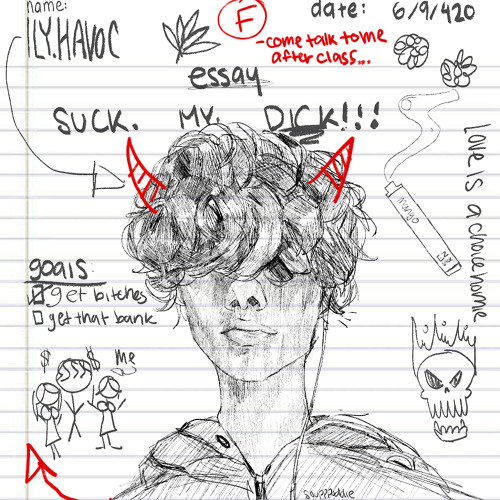 name:
ILY.HAVOC
F
-come talk to me
after class...
date: 6/9/420
essay
SUCK. MY. DICK!!!
Love is a choice homie
mango
goals:
get bitches
get that bank
$ $
Me